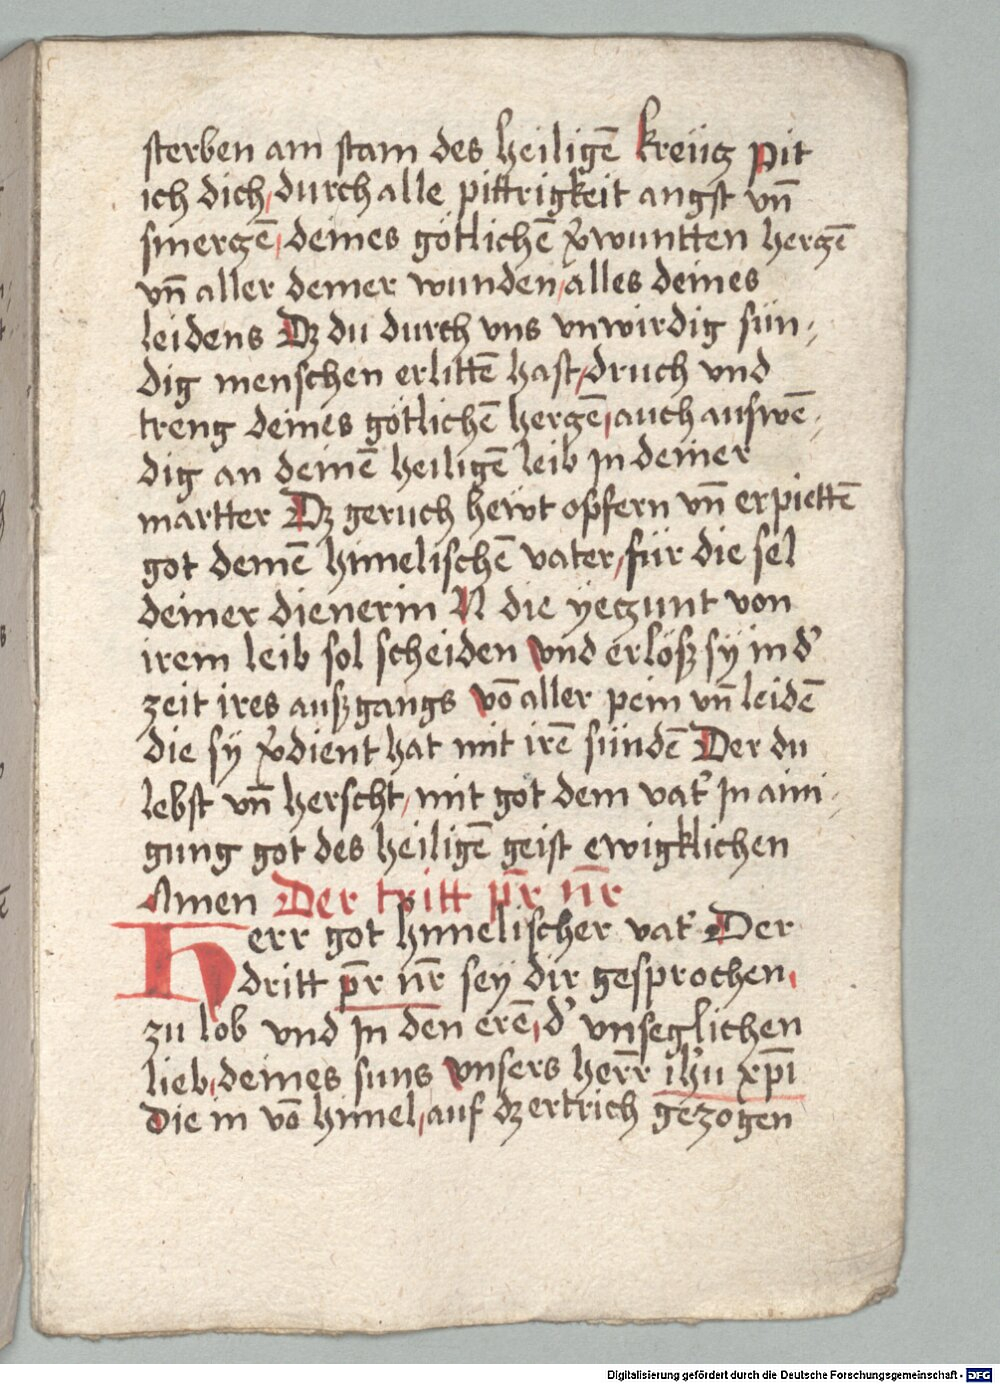 sterben am stam des heiligē kreütz pit
ich dich, durch alle pittrigkeit angst vn̄
smertzē, deines götlichē v̾wuntten hertzē
vn̄ aller deiner wunden, alles deines
leidens Dz du durch vns vnwirdig sün,
dig menschen erlittē hast, druch vnd
treng deines götlichē hertzē, auch auswē,
dig an deinē heiligē leib In deiner
martter Dz geruch hewt opfern vn̄ erpiettē
got deinē himelischē vater, für die sel
deiner dienerin N die yetzunt von
irem leib sol scheiden vnd erlösz sy in d'
zeit ires auszgangs vō aller pein vn̄ leidē
die sy v̾dient hat mit irē sündē Der du
lebst vn̄ herscht, mit got dem vat' In aini,
gung got des heiligē geist ewigklichen
Amen Der tritt pr̄ nr̄
Herr got himelischer vat' Der
dritt pr̄ nr̄ sey dir gesprochen,
zu lob vnd In den erē, d' vnseglichen
lieb, deines suns vnsers herr̄ ih'u xp̄i
Die in vō himel, auf dz ertrich gezogen
Digitalisierung gefördert durch die Deutsche Forschungsgemeinschaft - DFG